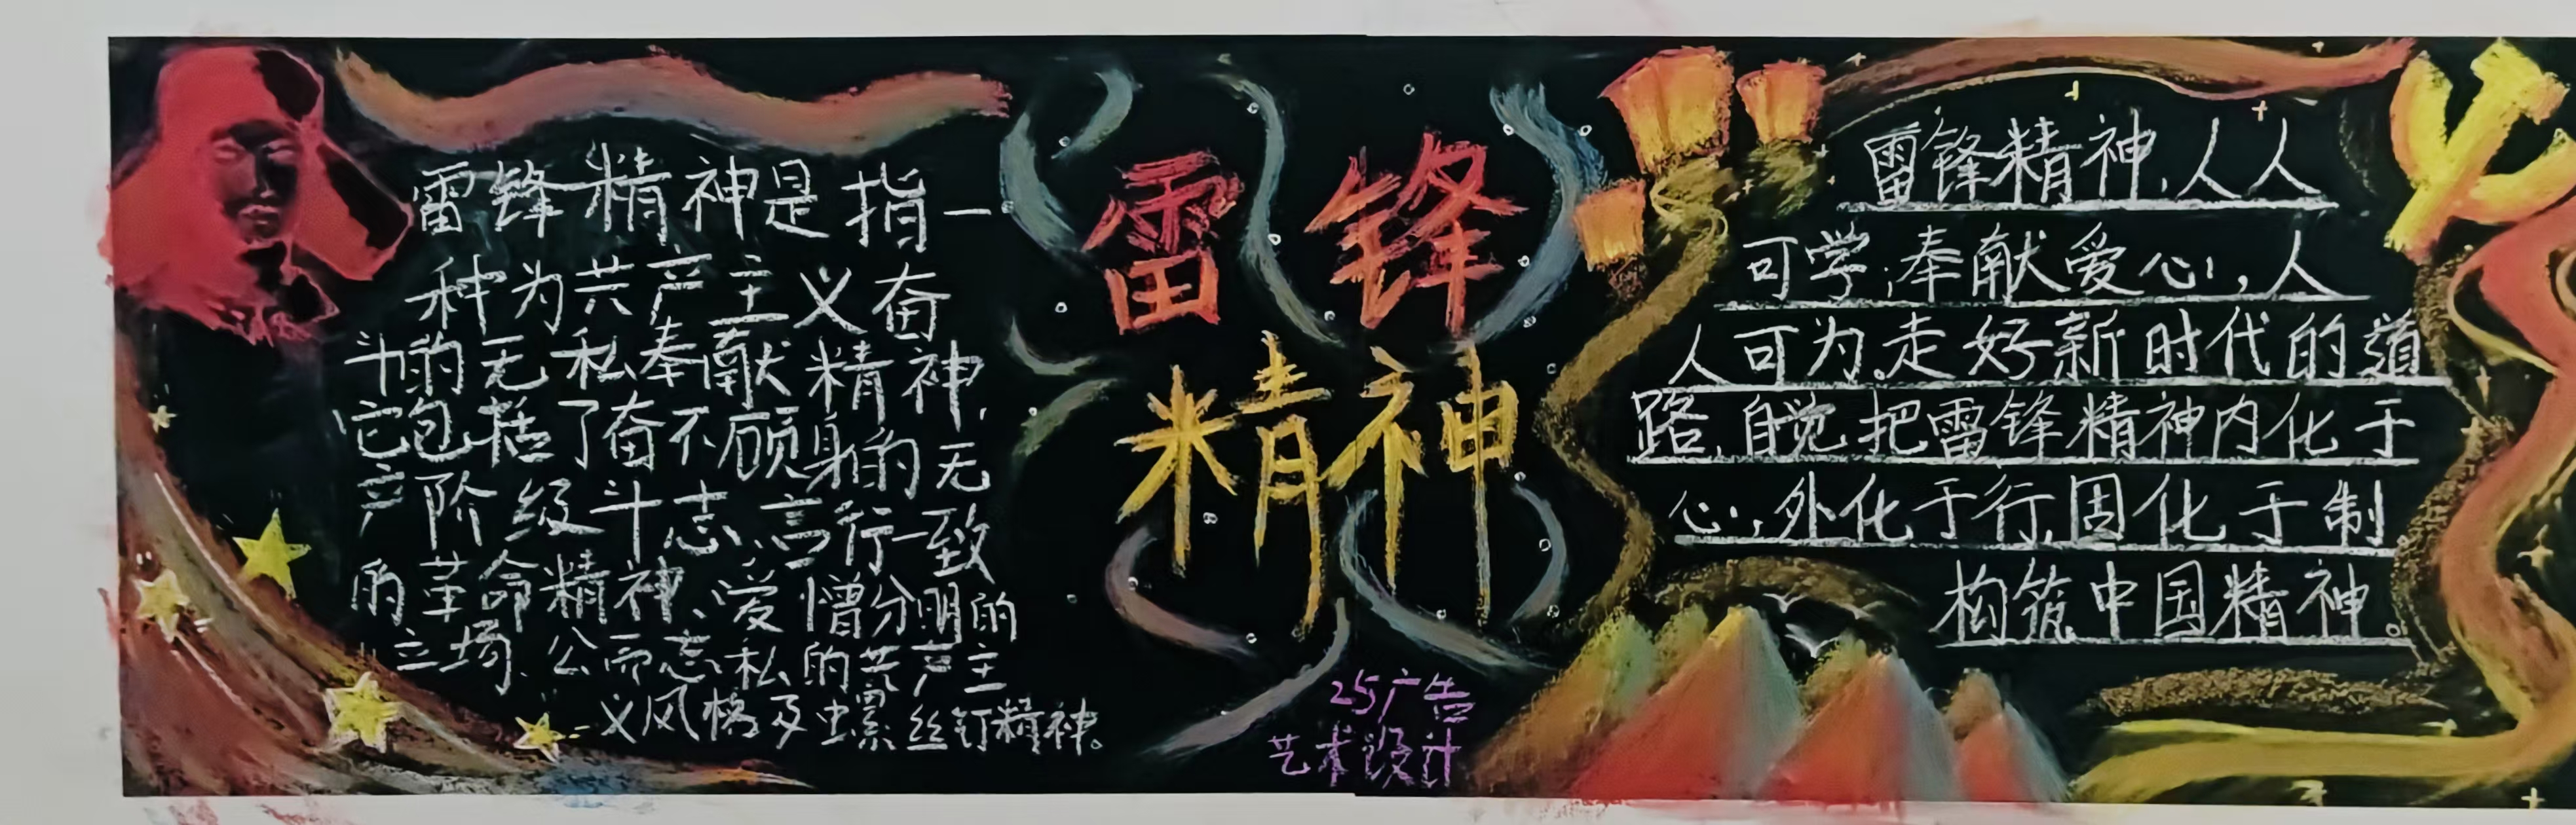 雷锋精神是指一
种为共产主义奋
斗的无私奉献精神,
它包括了奋不顾身的无
产阶级斗志、言行一致
的革命精神、爱憎分明的
立场、公而忘私的共产主
义风格及螺丝钉精神。
雷锋
精神
25广告
艺术设计
雷锋精神,人人
可学;奉献爱心,人
人可为。走好新时代的道
路,自觉把雷锋精神内化于
心,外化于行,固化于制
构筑中国精神。